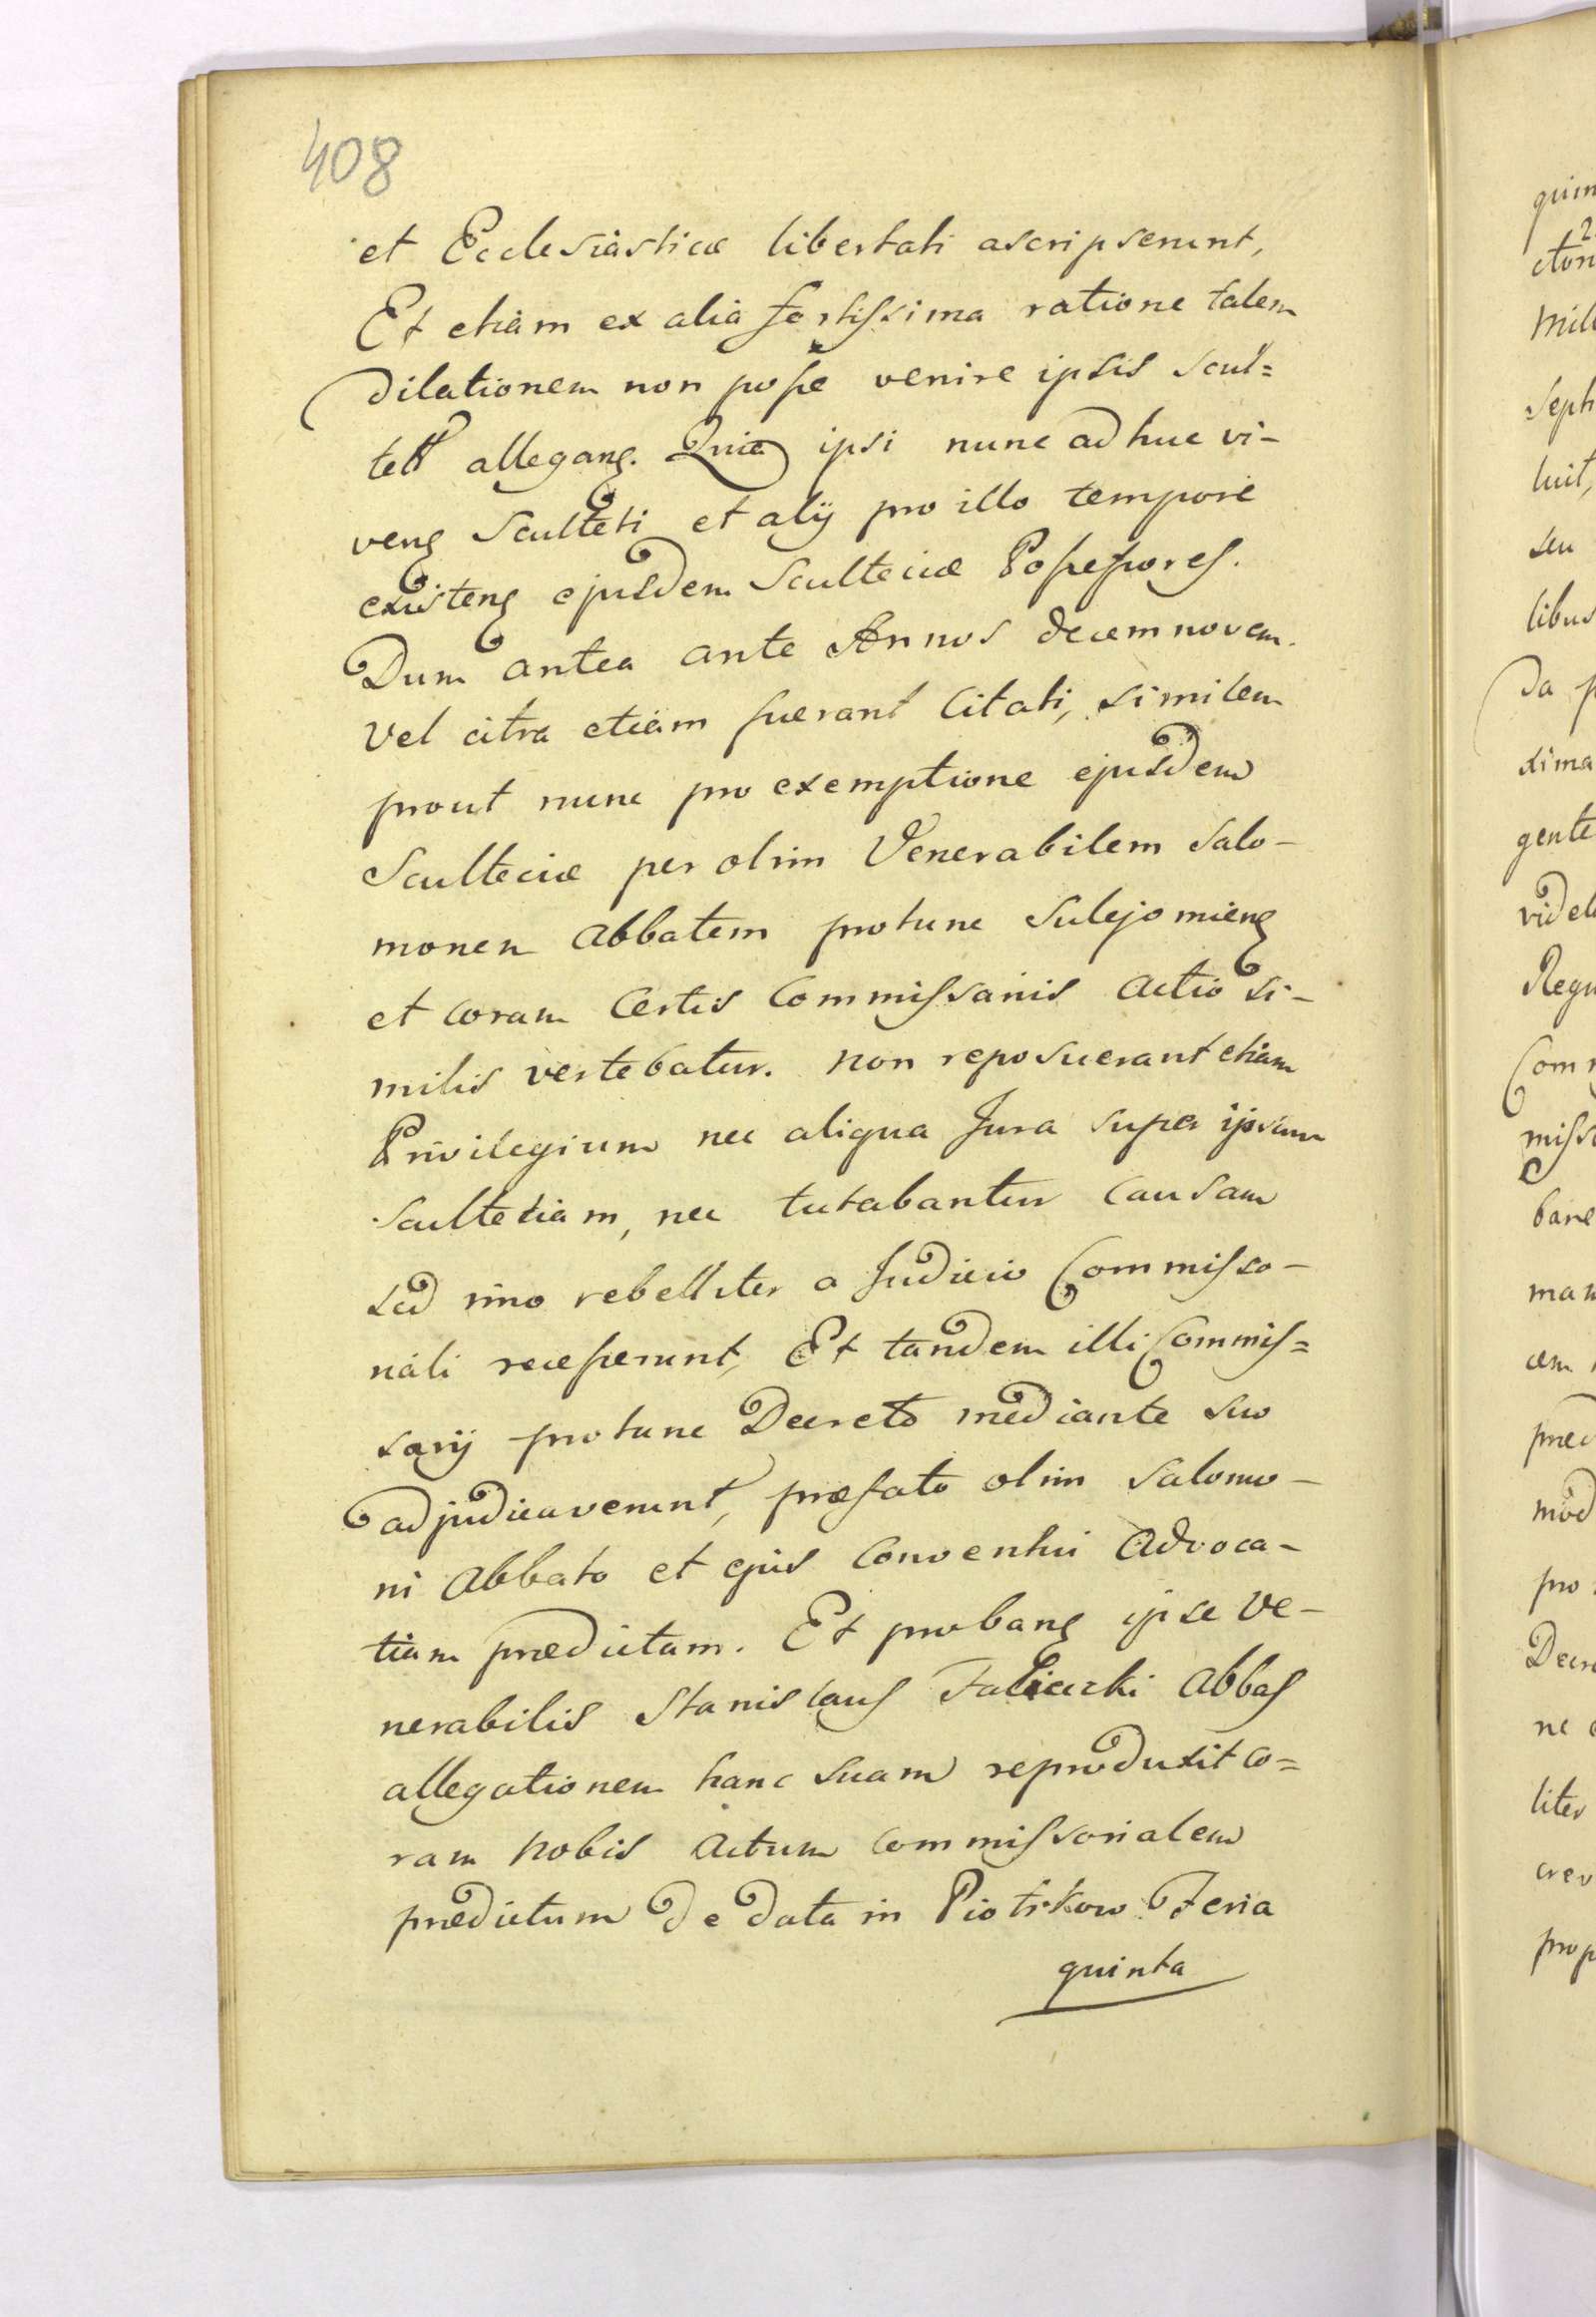 408
et Ecclesiasticæ libertati ascripserunt,
Et etiam ex alia fortissima ratione talem
dilationem non posse venire ipsis Scul=
tet allegans. Quia ipsi nunc adhuc vi-
vens Sculteti et alÿ pro illo tempore
existens ejusdem Scultecie Possessores.
Dum antea ante Annos decem novem
vel citra etiam fuerant Citati, similem
prout nunc pro exemptione ejusdem
Sculteciæ per olim Venerabilem Salo-
monem Abbatem protunc Sulejowiens
et coram Certis Commissariis Actio si-
milis vertebatur. Non reposuerant etiam
Privilegium nec aliqua Jura super ipsam
Scultetiam, nec tutabantur Causam
sed imo rebelliter a Judicio Commisso-
riali recesserunt, Et tandem illi Commis=
sarÿ protunc Decreto mediante suo
adjudicaverunt, præfato olim Salomo-
ni Abbato et ejus Conventui Advoca-
tiam prædictam. Et probans ipse Ve-
nerabilis Stanislaus Falicecki Abbas
allegationem hanc suam reproduxit co=
ram nobis Actum Commissorialem
prædictum de data in Piotrkow Feria
quinta